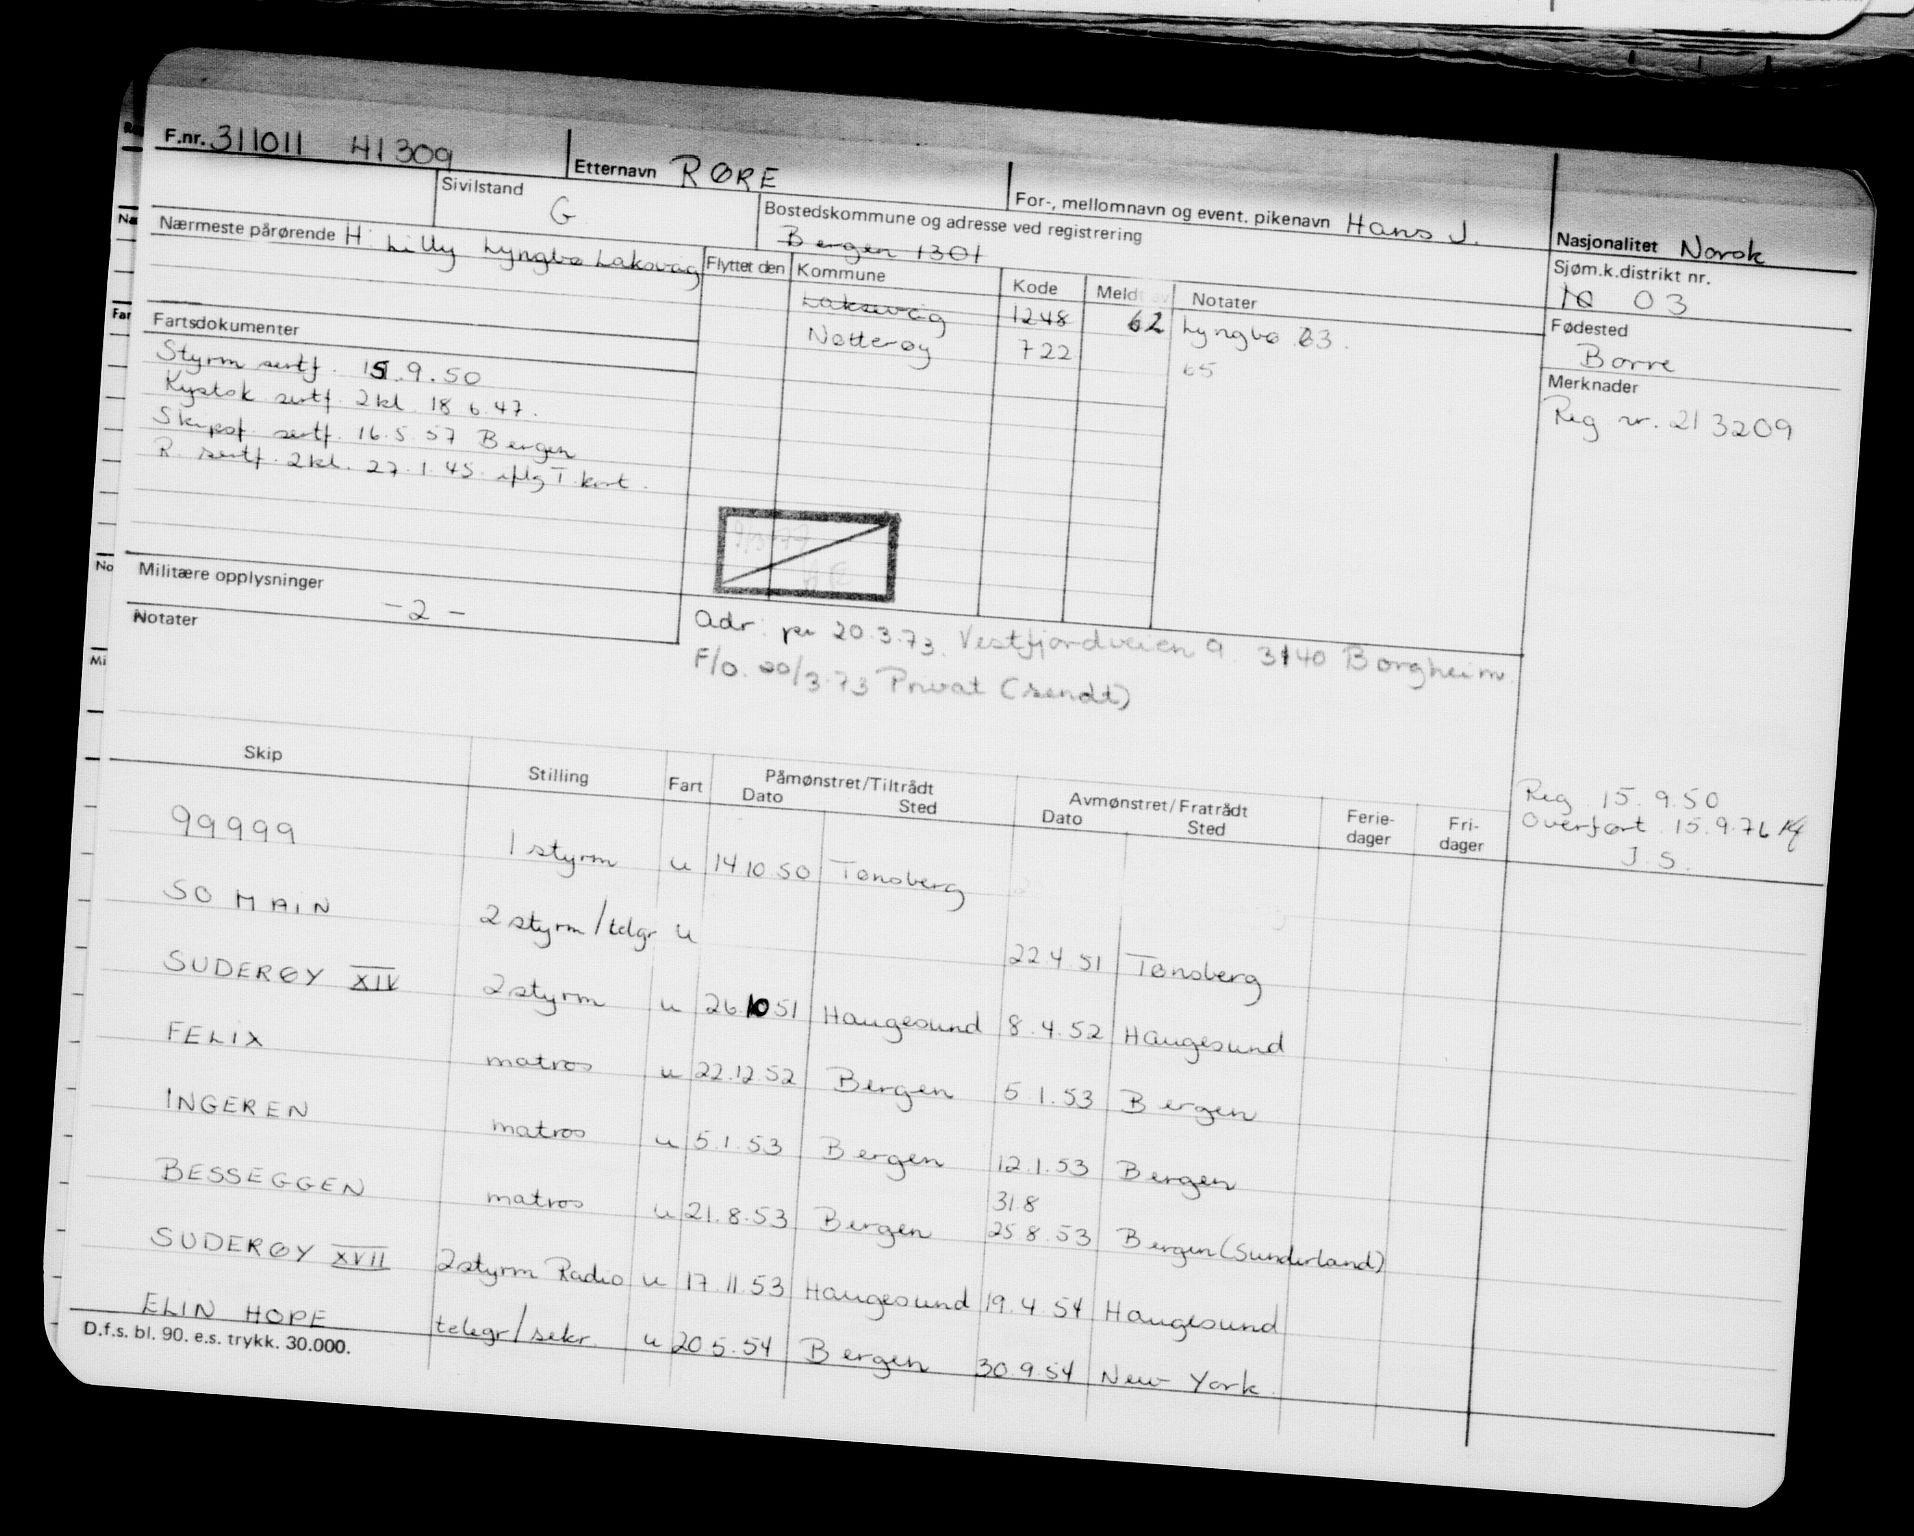 F.nr. 311011 41309 Etternavn RØRE For-, mellomnavn og event. pikenavn Hans J. Nasjonalitet Norsk
Sivilstand G. Bostedskommune og adresse ved registrering Bergen 1301
Sjøm.k.distrikt nr. 03
Nærmeste pårørende H. Lilly Lyngbø Laksvåg
Flyttet den Kommune Kode Meldt Notater
Laksevåg 1248 62 Lyngbø 63.
Nøtterøy 722 65
Fødested
Borre
Merknader
Reg nr. 213209
Fartsdokumenter
Styrm sertf. 15.9.50
Kystsk sertf. 2kl. 18.6.47.
Skipsf. sertf. 16.5.57 Bergen
R. sertf. 2kl. 27.1.45 iflg T.kort.
Militære opplysninger
-2-
Notater
Adr. pr 20.3.73. Vestfjordveien 9. 3140 Borgheim
F/o. 20/3.73 Privat (sendt)
Reg. 15.9.50
Overført 15.9.76
J.S.
Skip Stilling Fart Påmønstret/Tiltrådt Dato Sted Avmønstret/Fratrådt Dato Sted Ferie- dager Fri- dager
99999 1 styrm u 14.10.50 Tønsberg
SOMAIN 2 styrm/telgr u 22.4.51 Tønsberg
SUDERØY XIV 2 styrm u 26.10.51 Haugesund 8.4.52 Haugesund
FELIX matros u 22.12.52 Bergen 5.1.53 Bergen
INGEREN matros u 5.1.53 Bergen 12.1.53 Bergen
31.8
BESSEGGEN matros u 21.8.53 Bergen 25.8.53 Bergen (Sunderland)
SUDERØY XVII 2 styrm Radio u 17.11.53 Haugesund 19.4.54 Haugesund
ELIN HOPE telegr/sekr. u 20.5.54 Bergen 30.9.54 New York.
D.f.s. bl. 90. e.s. trykk. 30.000.